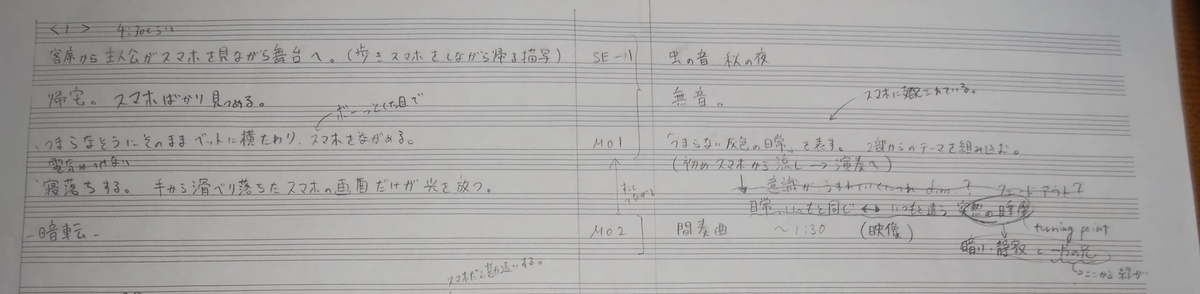 <1> 4:30くらい
客席から主人公がスマホを見ながら舞台へ。(歩きスマホをしながら帰る描写) SE-1 虫の音 秋の夜
帰宅。スマホばかり見つめる。 無音。
ボーっとした目で
スマホに支配されている。
つまらなそうにそのままベットに横たわり、スマホをながめる。 M01 「つまらない灰色の日常」を表す。 2部からのテーマを組み込む。
電気はつけない
(初めスマホから流し→演奏へ)
寝落ちする。 手から滑り落ちたスマホの画面だけが光を放つ。
意識がうすれていくにつれ dim.? フェードアウト?
日常、いつもと同じ ↔ いつもと違う 突然の
-暗転- M02 間奏曲 ~1:30 (映像)
turning point
暗い・静寂 と 一方の光
スマホだと勘違いする。
ここから